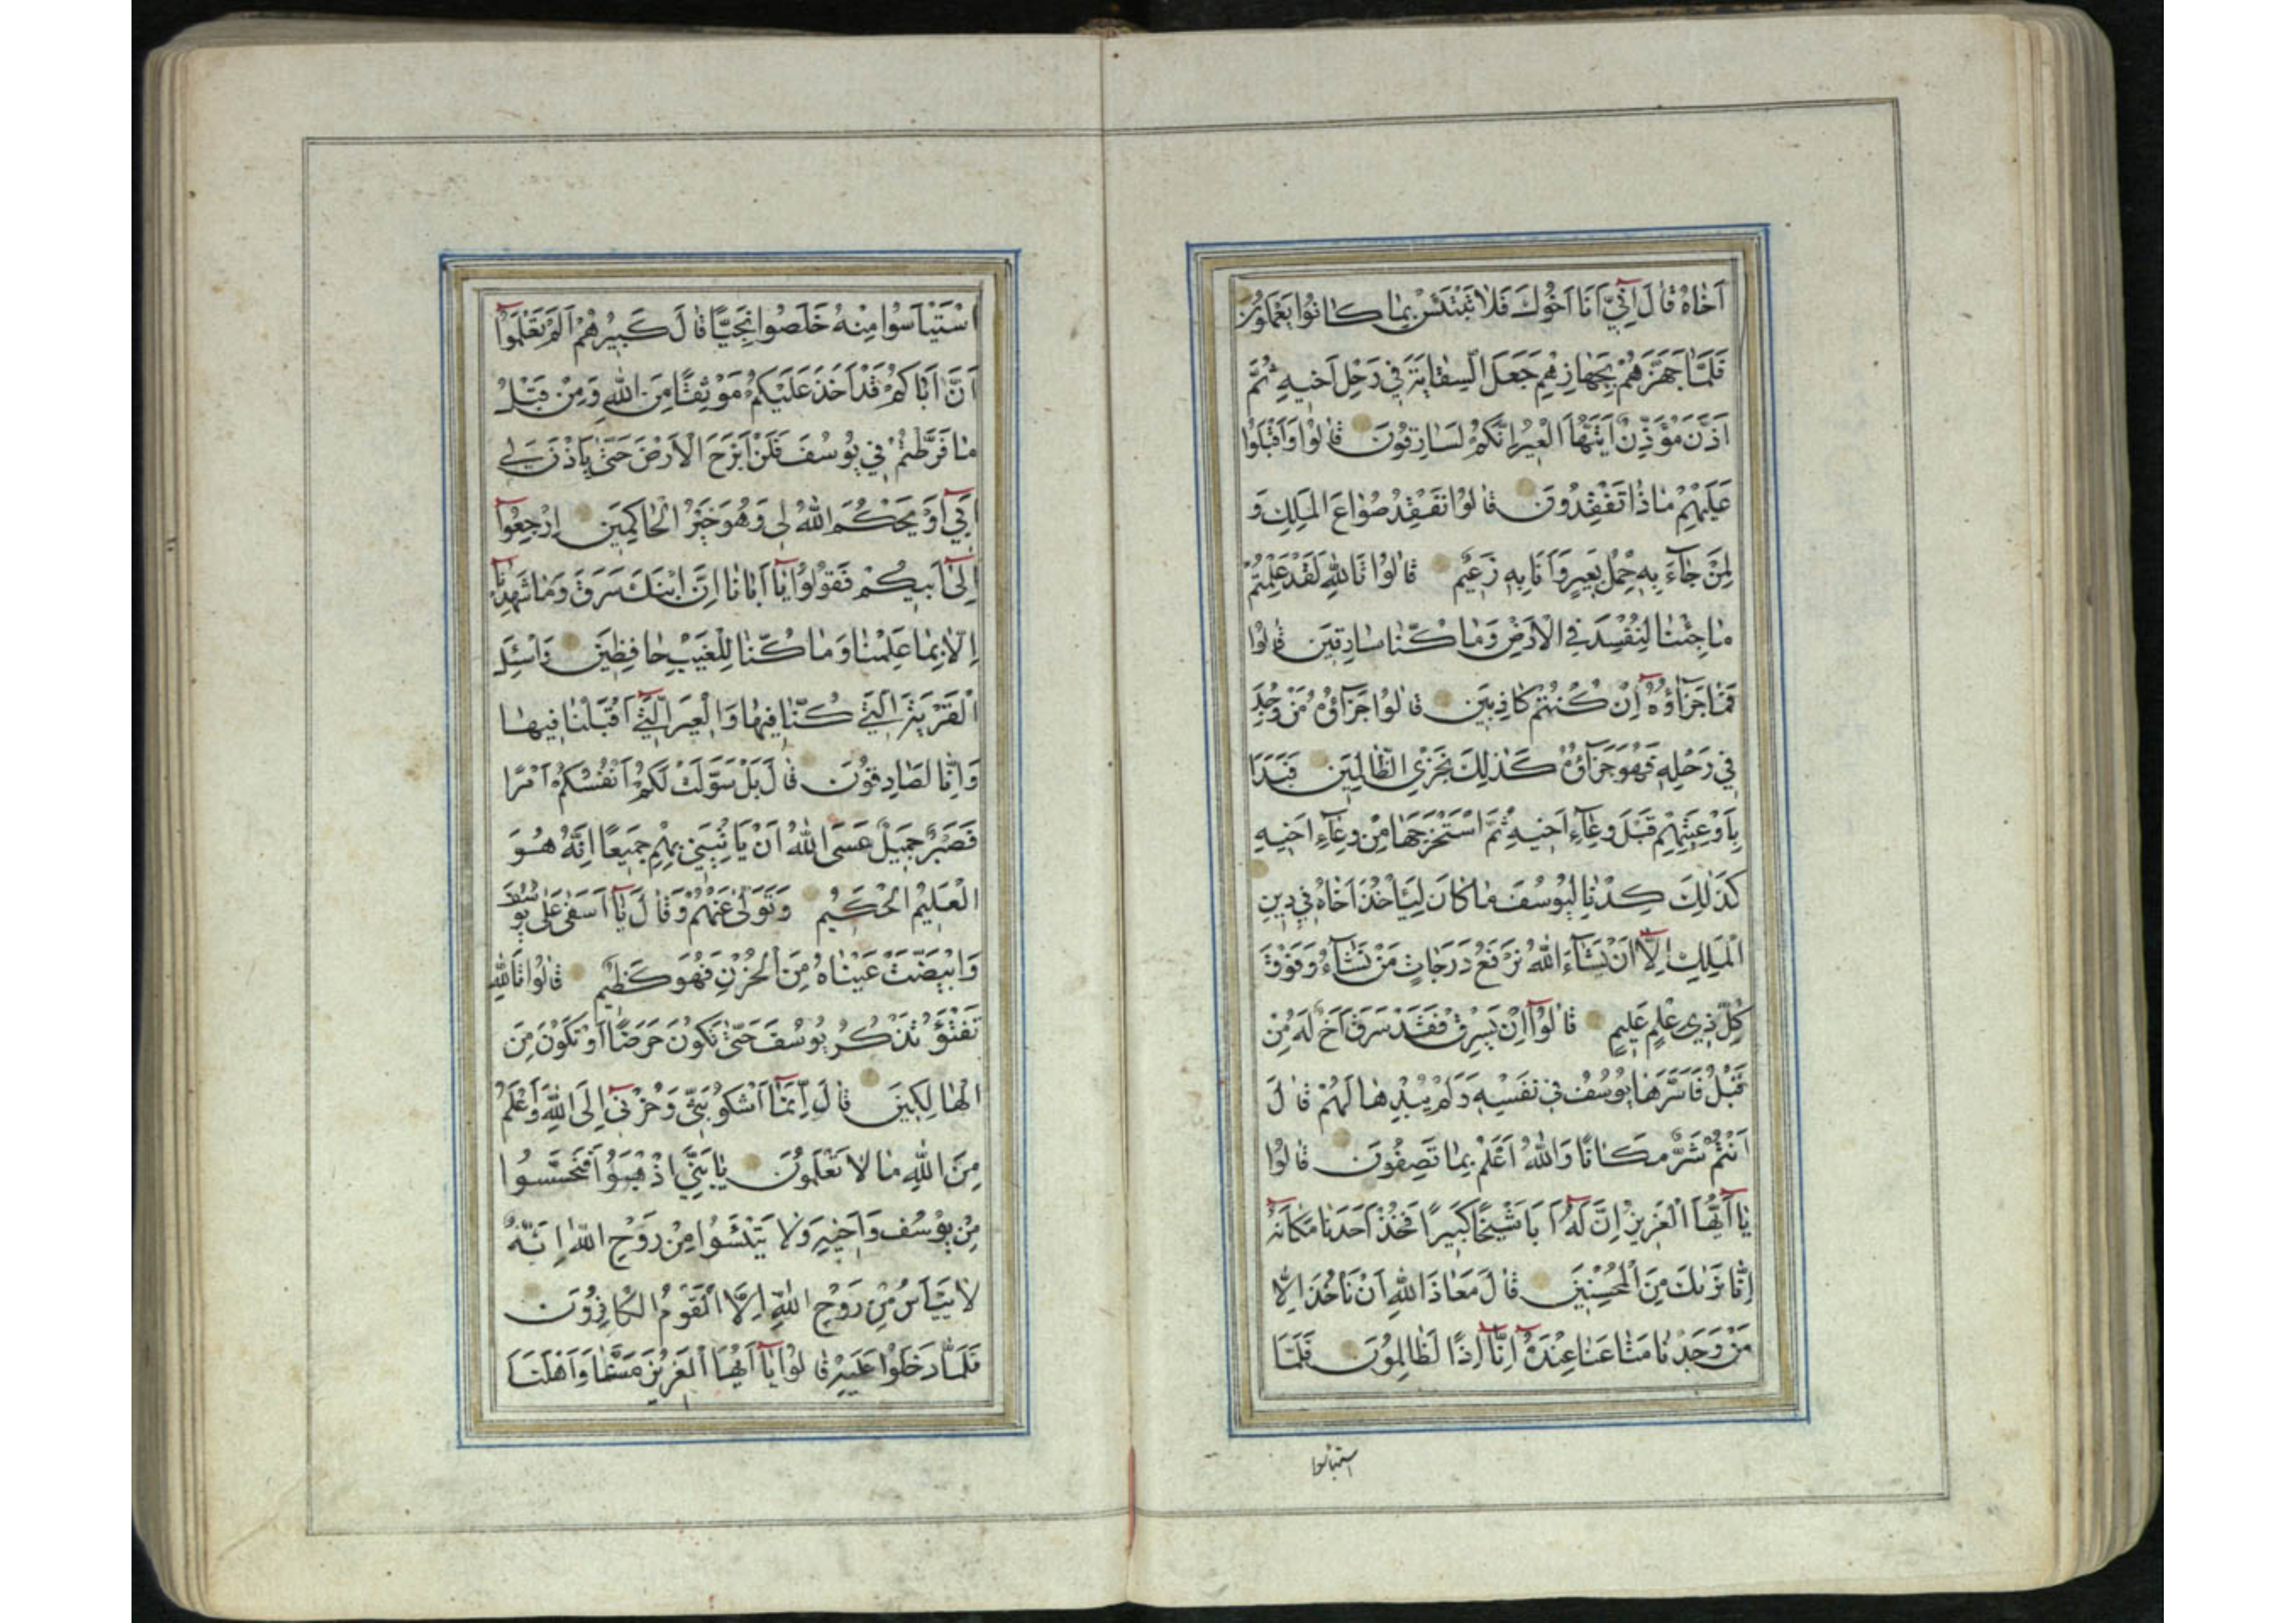 اَخَاهُ قَالَ اِنِّيۤ اَنَا اَخُوكَ فَلَا تَبْتَئِسْ بِمَا كَانُوا يَعْمَلُونَ
فَلَمَّا جَهَّزَهُمْ بِجَهَازِهِمْ جَعَلَ السِّقَايَةَ فِي رَحْلِ اَخِيهِ ثُمَّ
اَذَّنَ مُؤَذِّنٌ اَيَّتُهَا الْعِيرُ اِنَّكُمْ لَسَارِقُونَ قَالُوا وَاَقْبَلُوا
عَلَيْهِمْ مَاذَا تَفْقِدُونَ قَالُوا نَفْقِدُ صُوَاعَ الْمَلِكِ وَ
لِمَنْ جَاۤءَ بِهِ حِمْلُ بَعِيرٍ وَاَنَا بِهِ زَعِيمٌ قَالُوا تَاللّٰهِ لَقَدْ عَلِمْتُمْ
مَا جِئْنَا لِنُفْسِدَ فِي الْاَرْضِ وَمَا كُنَّا سَارِقِينَ قَالُوا
فَمَا جَزَاۤؤُهُۤ اِنْ كُنْتُمْ كَاذِبِينَ قَالُوا جَزَاۤؤُهُ مَنْ وُجِدَ
فِي رَحْلِهِ فَهُوَ جَزَاۤؤُهُ كَذٰلِكَ نَجْزِي الظَّالِمِينَ فَبَدَاَ
بِاَوْعِيَتِهِمْ قَبْلَ وِعَاۤءِ اَخِيهِ ثُمَّ اسْتَخْرَجَهَا مِنْ وِعَاۤءِ اَخِيهِ
كَذٰلِكَ كِدْنَا لِيُوسُفَ مَا كَانَ لِيَاْخُذَ اَخَاهُ فِي دِينِ
الْمَلِكِ اِلَّاۤ اَنْ يَشَاۤءَ اللّٰهُ نَرْفَعُ دَرَجَاتٍ مَنْ نَشَاۤءُ وَفَوْقَ
كُلِّ ذِي عِلْمٍ عَلِيمٌ قَالُوۤا اِنْ يَسْرِقْ فَقَدْ سَرَقَ اَخٌ لَهُ مِنْ
قَبْلُ فَاَسَرَّهَا يُوسُفُ فِي نَفْسِهِ وَلَمْ يُبْدِهَا لَهُمْ قَالَ
اَنْتُمْ شَرٌّ مَكَانًا وَاللّٰهُ اَعْلَمُ بِمَا تَصِفُونَ قَالُوا
يَاۤ اَيُّهَا الْعَزِيزُ اِنَّ لَهُۤ اَبًا شَيْخًا كَبِيرًا فَخُذْ اَحَدَنَا مَكَانَهُۤ
اِنَّا نَرٰىكَ مِنَ الْمُحْسِنِينَ قَالَ مَعَاذَ اللّٰهِ اَنْ نَاْخُذَ اِلَّا
مَنْ وَجَدْنَا مَتَاعَنَا عِنْدَهُۤ اِنَّاۤ اِذًا لَظَالِمُونَ فَلَمَّا
استيأسوا
اسْتَيْاَسُوا مِنْهُ خَلَصُوا نَجِيًّا قَالَ كَبِيرُهُمْ اَلَمْ تَعْلَمُوۤا
اَنَّ اَبَاكُمْ قَدْ اَخَذَ عَلَيْكُمْ مَوْثِقًا مِنَ اللّٰهِ وَمِنْ قَبْلُ
مَا فَرَّطْتُمْ فِي يُوسُفَ فَلَنْ اَبْرَحَ الْاَرْضَ حَتّٰى يَاْذَنَ لِي
اَبِيۤ اَوْ يَحْكُمَ اللّٰهُ لِي وَهُوَ خَيْرُ الْحَاكِمِينَ اِرْجِعُوۤا
اِلٰىۤ اَبِيكُمْ فَقُولُوا يَاۤ اَبَانَا اِنَّ ابْنَكَ سَرَقَ وَمَا شَهِدْنَاۤ
اِلَّا بِمَا عَلِمْنَا وَمَا كُنَّا لِلْغَيْبِ حَافِظِينَ وَاسْئَلِ
الْقَرْيَةَ الَّتِي كُنَّا فِيهَا وَالْعِيرَ الَّتِيۤ اَقْبَلْنَا فِيهَا
وَاِنَّا لَصَادِقُونَ قَالَ بَلْ سَوَّلَتْ لَكُمْ اَنْفُسُكُمْ اَمْرًا
فَصَبْرٌ جَمِيلٌ عَسَى اللّٰهُ اَنْ يَاْتِيَنِي بِهِمْ جَمِيعًا اِنَّهُ هُوَ
الْعَلِيمُ الْحَكِيمُ وَتَوَلّٰى عَنْهُمْ وَقَالَ يَاۤ اَسَفٰى عَلٰى يُوسُفَ
وَابْيَضَّتْ عَيْنَاهُ مِنَ الْحُزْنِ فَهُوَ كَظِيمٌ قَالُوا تَاللّٰهِ
تَفْتَؤُ تَذْكُرُ يُوسُفَ حَتّٰى تَكُونَ حَرَضًا اَوْ تَكُونَ مِنَ
الْهَالِكِينَ قَالَ اِنَّمَاۤ اَشْكُو بَثِّي وَحُزْنِيۤ اِلَى اللّٰهِ وَاَعْلَمُ
مِنَ اللّٰهِ مَا لَا تَعْلَمُونَ يَا بَنِيَّ اذْهَبُوا فَتَحَسَّسُوا
مِنْ يُوسُفَ وَاَخِيهِ وَلَا تَيْئَسُوا مِنْ رَوْحِ اللّٰهِ اِنَّهُ
لَا يَيْاَسُ مِنْ رَوْحِ اللّٰهِ اِلَّا الْقَوْمُ الْكَافِرُونَ
فَلَمَّا دَخَلُوا عَلَيْهِ قَالُوا يَاۤ اَيُّهَا الْعَزِيزُ مَسَّنَا وَاَهْلَنَا